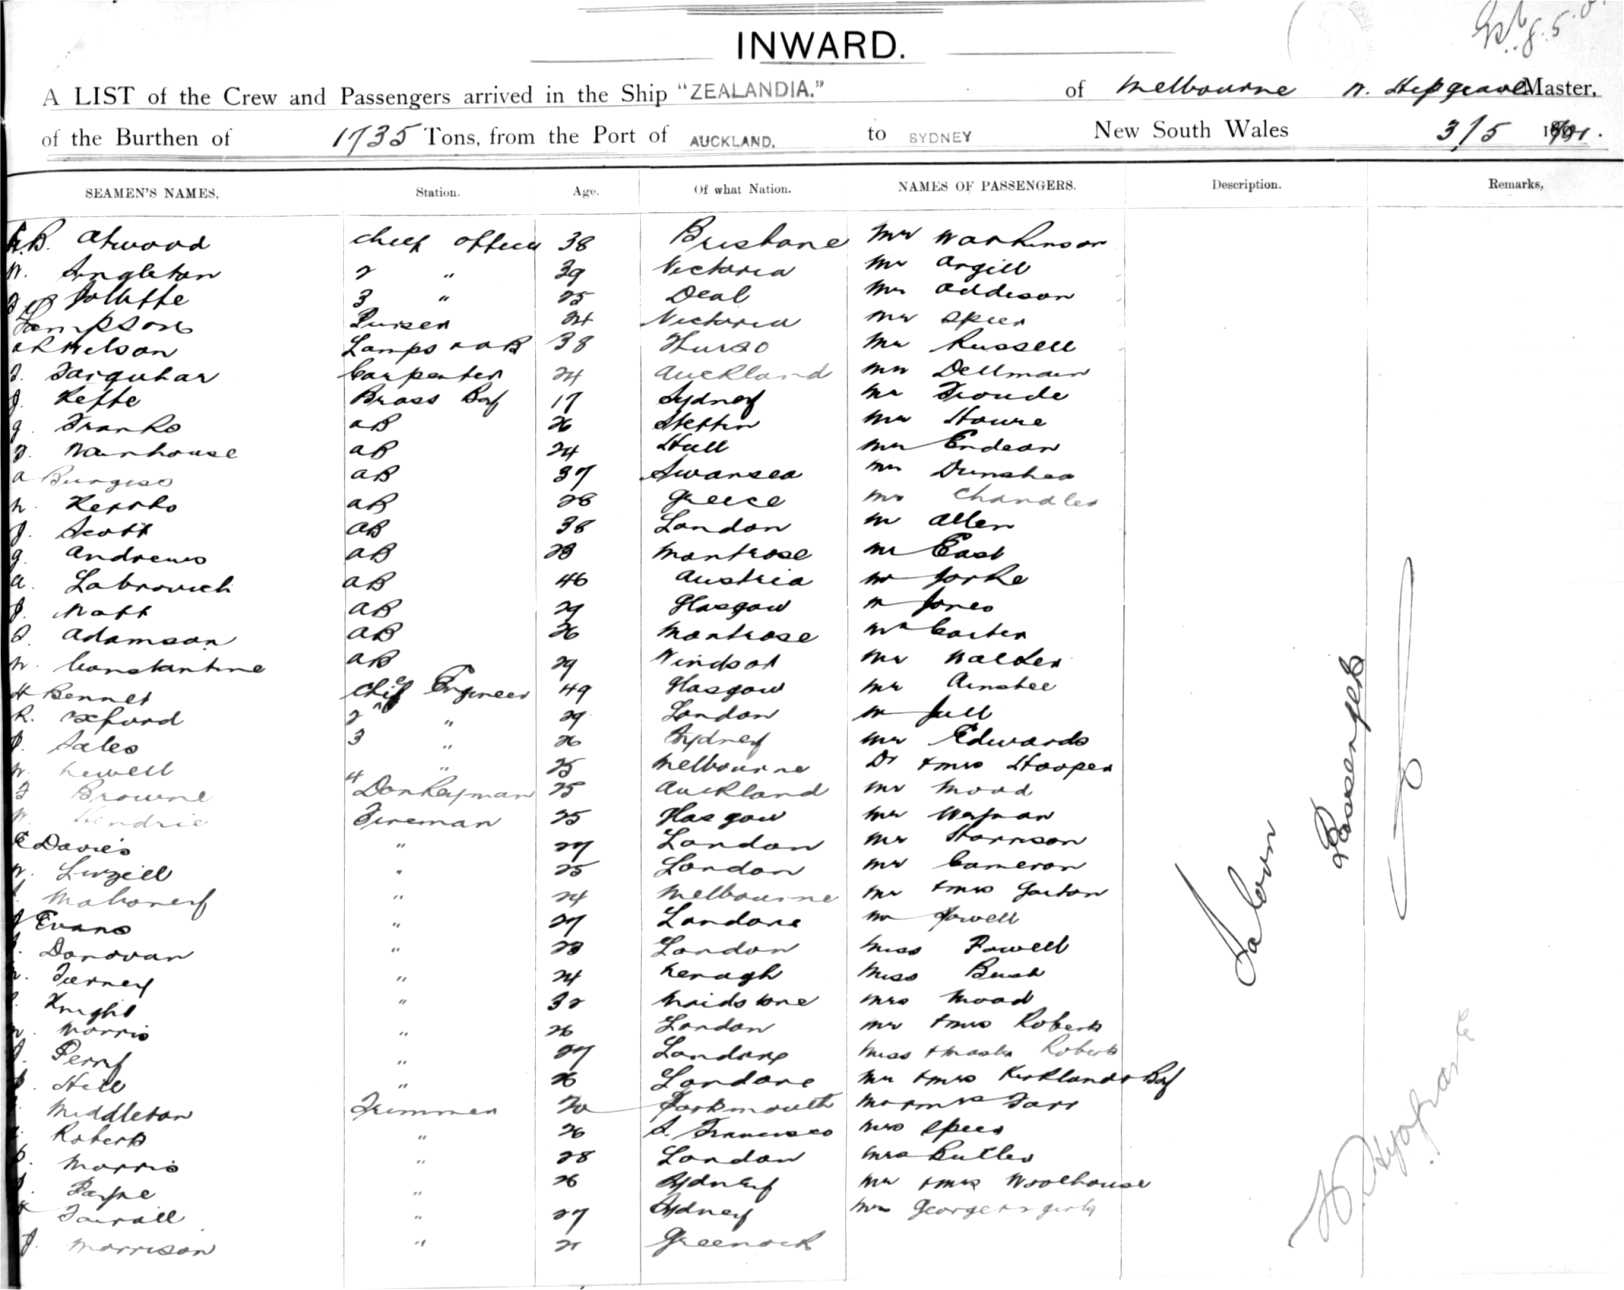 INWARD.
A LIST of the Crew and Passengers arrived in the Ship "ZEALANDIA." of Melbourne Master,
of the Burthen of 1735 Tons, from the Port of AUCKLAND. to SYDNEY New South Wales 3/5
SEAMEN'S NAMES. Station. Age. Of what Nation. NAMES OF PASSENGERS. Description. Remarks,
B. Atwood Chief Officer 38 Brisbane Mr
W. Singleton 2 " 39 Victoria Mr Argill
Jolliffe 3 " 25 Deal Mr Addison
Purser 24 Victoria Mr Spier
Wilson Lamps & AB 38 Thurso Mr Russell
Farquhar Carpenter 24 Auckland Mr Dellmain
J. Keffe Brass Boy 17 Sydney Mr Froude
G. Franks AB 26 Stettin Mr Howre
Wainhouse AB 24 Hull Mr Endean
A Burgess AB 37 Swansea Mr Dunshea
AB 28 Greece Mr Chandler
J. Scott AB 38 London Mr Allen
G. Andrews AB 28 Montrose Mr East
A. Labrovich AB 46 Austria Mr Yorke
J. Watt AB 29 Glasgow Mr Jones
Adamson AB 26 Montrose Mr Carter
W. Constantine AB 29 Windsor Mr Walder
H Bennet Chief Engineer 49 Glasgow Mr Ainslee
R. Oxford 2 " 29 London Mr Jull
J. Sales 3 " 26 Sydney Mr Edwards
W. Newell 4 " 25 Melbourne Dr & Mrs Hooper
Browne Donkeyman 25 Auckland Mr Mood
Hendrie Fireman 25 Glasgow Mr Wayman
E Davies " 27 London Mr Harrison
W. Linzell " 25 London Mr Cameron
Mahoney " 24 Melbourne Mr & Mrs
J Evans " 27 London Mr Jowell
Donovan " 28 London Miss Powell
" 24 Nenagh Miss Bush
Knight " 32 Maidstone Mrs Mood
Morris " 26 London Mr & Mrs Roberts
Perry " 27 London Miss & Master Roberts
Hill " 26 London Mr & Mrs Kirkland & Boy
Middleton Trimmer Mr & Mrs Farr
Roberts " 26 S. Francisco Mrs Speer
Morris " 28 London Mrs Butler
Payne " 26 Sydney Mr & Mrs Woolhouse
" 27 Sydney
J. Morrison " 21 Greenock
Saloon Passengers